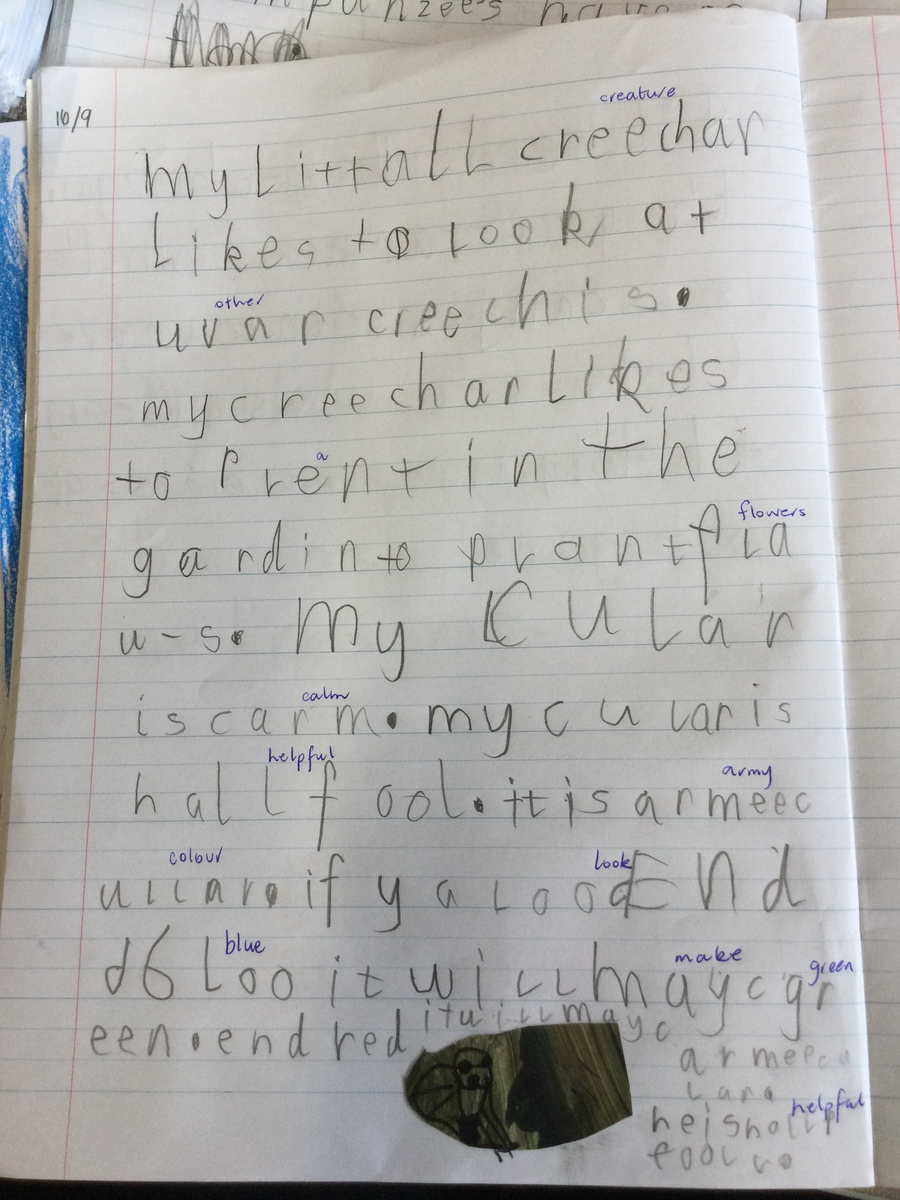 16/9
creature
my Littall creechar
Likes to Look at
other
uvar creechis.
my creechar Likes
to Prent in the
a
flowers
gardin to prant fla
u-s. My CuLar
calm
is carm. my cularis
helpful
halLfool. it is armeec
army
colour
look
ullar. if ya loo End
blue
make
green
bLoo it will mayc gr
een. end red it will mayc
armeec
Lara
helpful
heis
fool